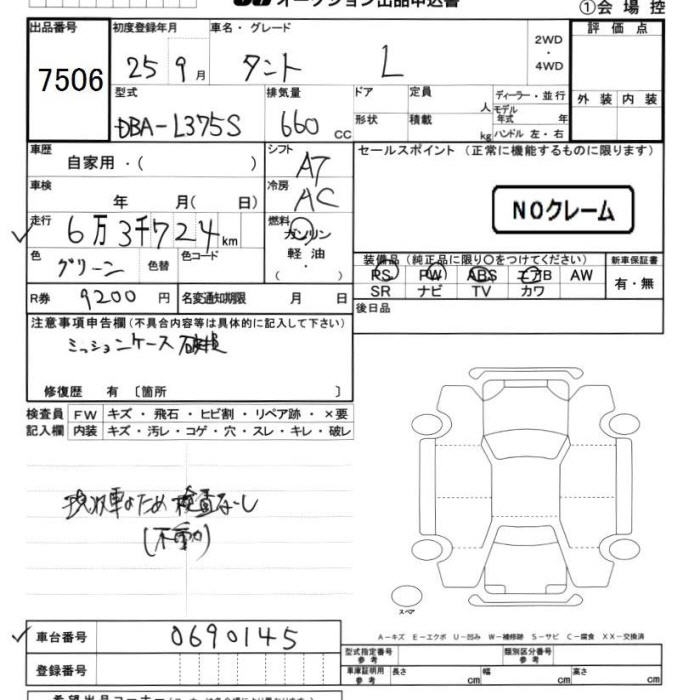 オークション出品申込書
①会場控
出品番号 7506
初度登録年月 25 9月
車名・グレード タント L
2WD・4WD
評価点
外装 内装
型式 DBA-L375S
排気量 660 CC
ドア
定員 人
ディーラー・並行
モデル年式 年
形状
積載 kg
ハンドル 左・右
車歴 自家用・( )
シフト AT
セールスポイント (正常に機能するものに限ります)
NOクレーム
車検 年 月( 日)
冷房 AC
走行 6万3千724km
燃料 ガソリン 軽油 ( ・ )
色 グリーン 色替 色コード
装備品(純正品に限り○をつけてください)
PS PW ABS エアB AW
SR ナビ TV カワ
新車保証書 有・無
R券 9200円
名変通知期限 月 日
後日品
注意事項申告欄(不具合内容等は具体的に記入して下さい)
ミッションケース破損
修復歴 有 〔箇所 〕
検査員記入欄
FW キズ・飛石・ヒビ割・リペア跡・×要
内装 キズ・汚レ・コゲ・穴・スレ・キレ・破レ
現状車のため検査なし
(不動)
スペア
車台番号 0690145
登録番号
A-キズ E-エクボ U-凹み W-補修跡 S-サビ C-腐食 XX-交換済
型式指定番号 参考
類別区分番号 参考
車庫証明用 参考 長さ cm 幅 cm 高さ cm
希望出品コーナー